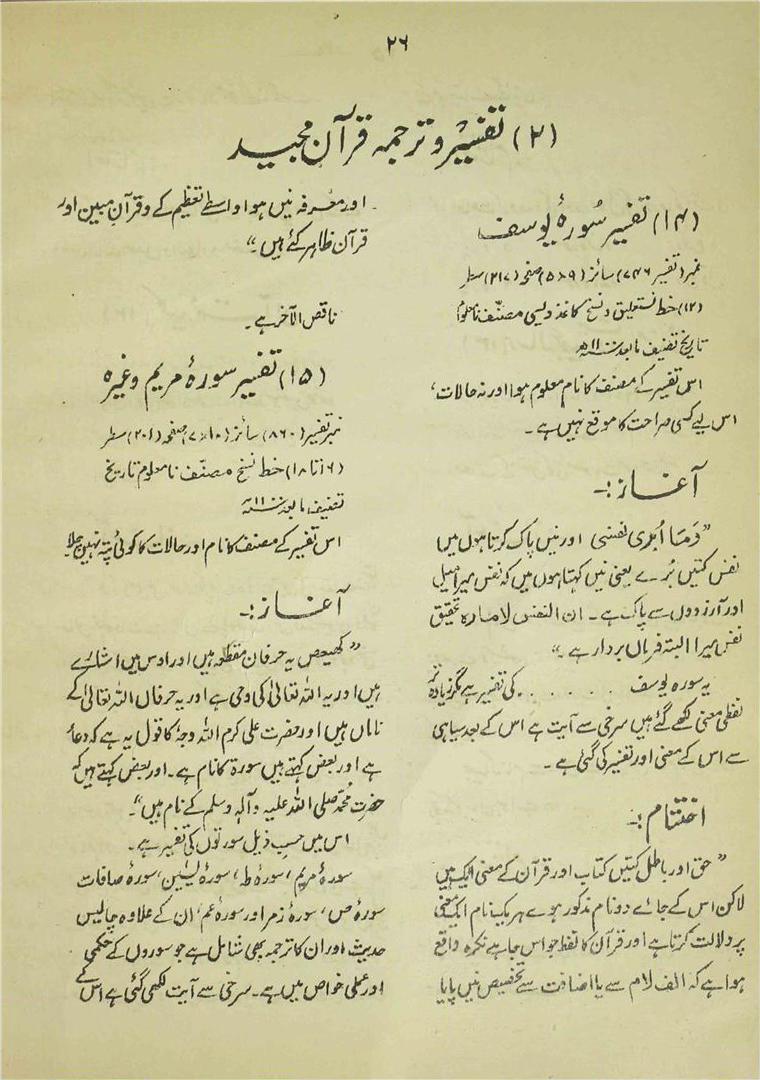 ۲۶
(۲) تفسیر و ترجمہ قرآن مجید
(۱۴) تفسیر سُورۂ یوسف
نمبر (تفسیر ۷۴۶) سائز (۹×۵) صفحہ (۲۱۷) سطر
(۱۲) خط نستعلیق و نسخ کاغذ دیسی مصنّف نامعلوم
تاریخ تصنیف مابعد ۱۱۰۰ھ
اس تفسیر کے مصنف کا نام معلوم ہوا اور نہ حالات،
اس لیے کسی صراحت کا موقع نہیں ہے۔
آغاز:۔
”وَمَا اُبَرِی نفسی اور نیں پاک کرتا ہوں میں
نفس کتیں بُرے یعنی نیں کہتا ہوں میں کہ نفس میرا میل
اور آرزووں سے پاک ہے۔ ان النفس لامارہ تحقیق
نفس میرا البتہ فرماں بردار ہے۔“
یہ سورہ یوسف ...... کی تفسیر ہے مگر زیادہ تر
لفظی معنی لکھے گئے ہیں سرخی سے آیت ہے اس کے بعد سیاہی
سے اس کے معنی اور تفسیر کی گئی ہے۔
اختتام:۔
”حق اور باطل کتیں کتاب اور قرآن کے معنی ایک ہیں
لاکن اس کے جائے دو نام مذکور ہوے ہر یک نام ایک معنی
پر دلالت کرتا ہے اور قرآن کا لفظ جو اس جاہے نکرہ واقع
ہوا ہے کہ الف لام سے یا اضافت سے تخصیص نیں پایا
اور معرفہ نیں ہوا واسطے تعظیم کے و قرآن مبین اور
قرآن ظاہر کئے ہیں۔“
ناقص الآخر ہے۔
(۱۵) تفسیر سورۂ مریم وغیرہ
نمبر تفسیر (۸۶۰) سائز (۱۰×۷) صفحہ (۲۰۱) سطر
(۱۶ تا ۱۸) خط نسخ مصنّف نامعلوم تاریخ
تصنیف مابعد ۱۱۰۰ھ
اس تفسیر کے مصنف کا نام اور حالات کا کوئی پتہ نہیں چلا
آغاز:۔
”کھیعص یہ حرفان مقطعہ ہیں اور اوس میں اشارے
ہیں اور یہ اللہ تعالیٰ کی وحی ہے اور یہ حرفاں اللہ تعالیٰ کے
ناماں ہیں اور حضرت علی کرم اللہ وجہٗ کا قول یہ ہے کہ دعاءٔ
ہے اور بعض کہتے ہیں سورۃ کا نام ہے۔ اور بعض کہتے ہیں کہ
حضرت محمّد صلی اللہ علیہ وآلہٖ وسلم کے نام ہیں“۔
اس میں حسبِ ذیل سورتوں کی تفسیر ہے۔
سورۂ مریم، سورۂ طہٰ، سورۂ یٰسین، سورۂ صافات
سورۂ ص، سورۂ زمر اور سورۂ عم، ان کے علاوہ چالیس
حدیث اور ان کا ترجمہ بھی شامل ہے جو سوروں کے حکمی
اور عملی خواص میں ہے۔ سرخی سے آیت لکھی گئی ہے اس کے